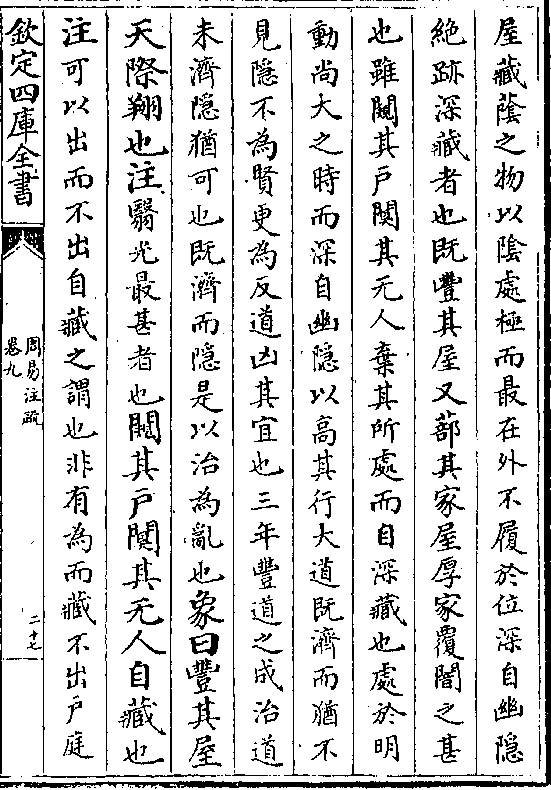 屋藏䕃之物以陰處極而最在外不履於位深自幽隱
絶跡深藏者也既豐其屋又蔀其家屋厚家覆闇之甚
也雖闚其戸闃其无人棄其所處而自深藏也處於明
動尚大之時而深自幽隱以髙其行大道既濟而猶不
見隱不為賢更為反道凶其宜也三年豐道之成治道
未濟隱猶可也既濟而隱是以治為亂也象曰豐其屋
天際翔也注翳光最甚者也闚其戸闃其无人自藏也
注可以出而不出自藏之謂也非有為而藏不出戸庭
欽定四庫全書
周易注疏
卷九
二十七